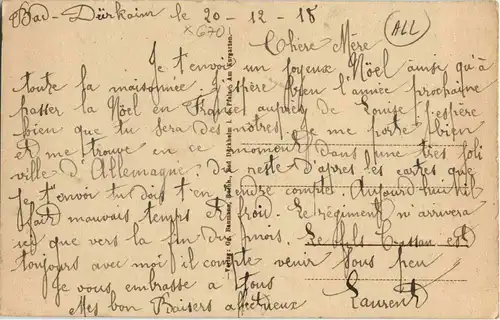 Bad-Dürkeim le 20-12-18
x670
ALL
Chère Mère
Je t'envoi un joyeux Nöel ainsi qu'à
toute la maisonnée J'espère bien l'année prochaine
passer la Nöel en France auprès de Louise J'espère
bien que tu sera des notres Je me porte bien
et me trouve en ce moment dans une très joli
ville d'Allemagne, du reste d'après les cartes que
je t'envoi tu dois t'en rendre compte Aujourd'hui il
fait mauvais temps et froid. Le régiment n'arrivera
ici que vers la fin du mois. Le fils est
toujours avec moi il compte venir sous peu
Je vous embrasse a tous
Mes bon Baisers affectueux Laurent
Verlag: Bad Dürkheim i. d. Pfalz, Am Kurgarten.